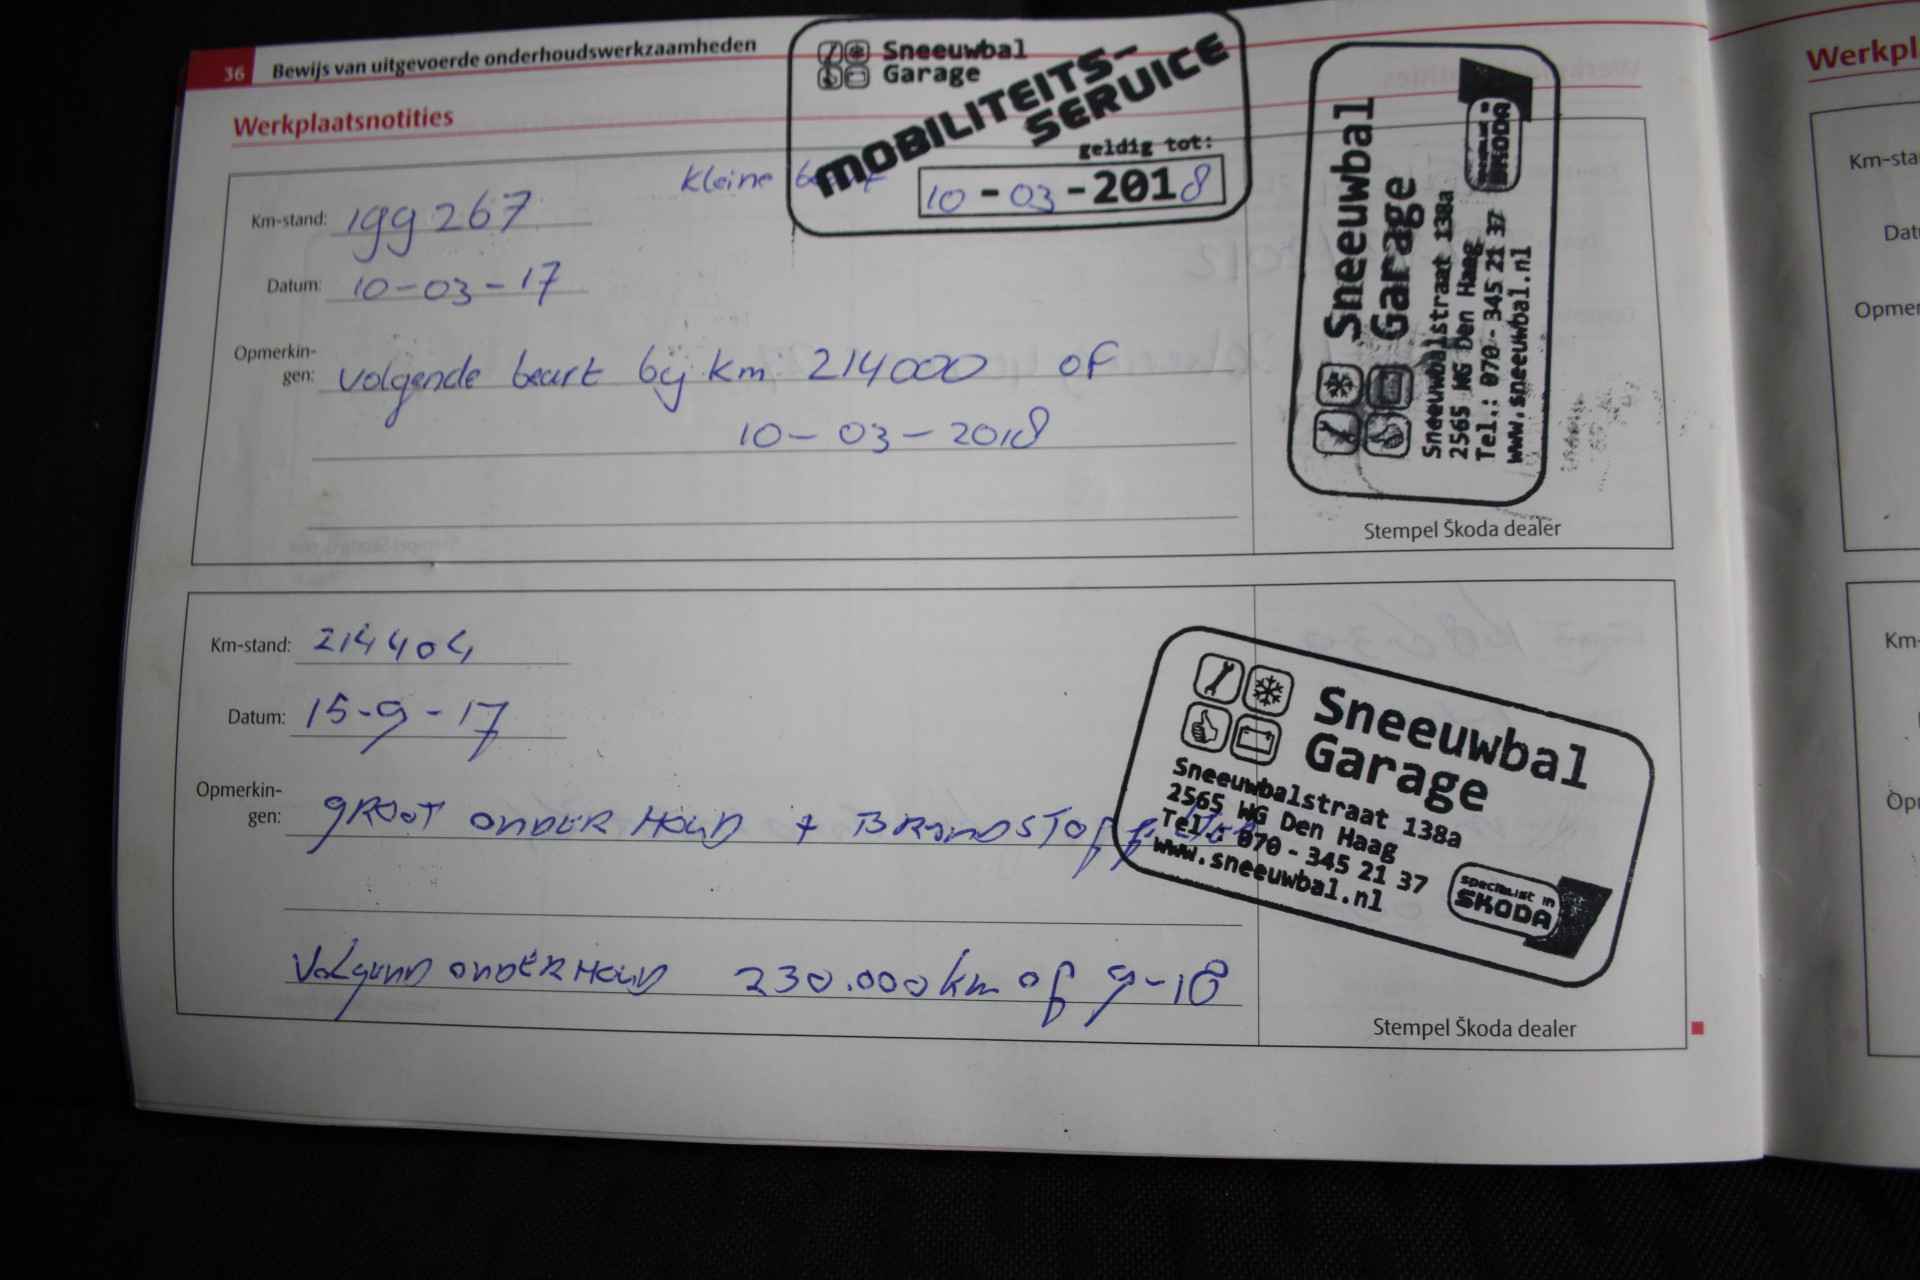 36 Bewijs van uitgevoerde onderhoudswerkzaamheden
Werkplaatsnotities
Sneeuwbal
Garage
MOBILITEITS-
SERVICE
geldig tot:
10 - 03 - 2018
kleine
Km-stand: 199267
Datum: 10-03-17
Opmerkin-
gen: volgende beurt bij km 214000 of
10-03-2018
Sneeuwbal
Garage
Sneeuwbalstraat 138a
2565 WG Den Haag
Tel.: 070 - 345 21 37
www.sneeuwbal.nl
SPECIALIST IN
SKODA
Stempel Škoda dealer
Km-stand: 214404
Datum: 15-9-17
Opmerkin-
gen: GROOT ONDERHOUD + BRANDSTOF
VOLGEND ONDERHOUD 230.000 km of 9-18
Sneeuwbal
Garage
Sneeuwbalstraat 138a
2565 WG Den Haag
Tel.: 070 - 345 21 37
www.sneeuwbal.nl
SPECIALIST IN
SKODA
Stempel Škoda dealer
Werkpl
Km-sta
Dat
Opmer
Km-
Op